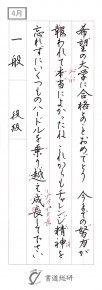 4月
希望の大学に合格おめでとう 今までの努力が
報われて本当によかったね これからもチャレンジ精神を
忘れずにいくつものハードルを乗り越え成長して下さい
一般 段級
書道総研